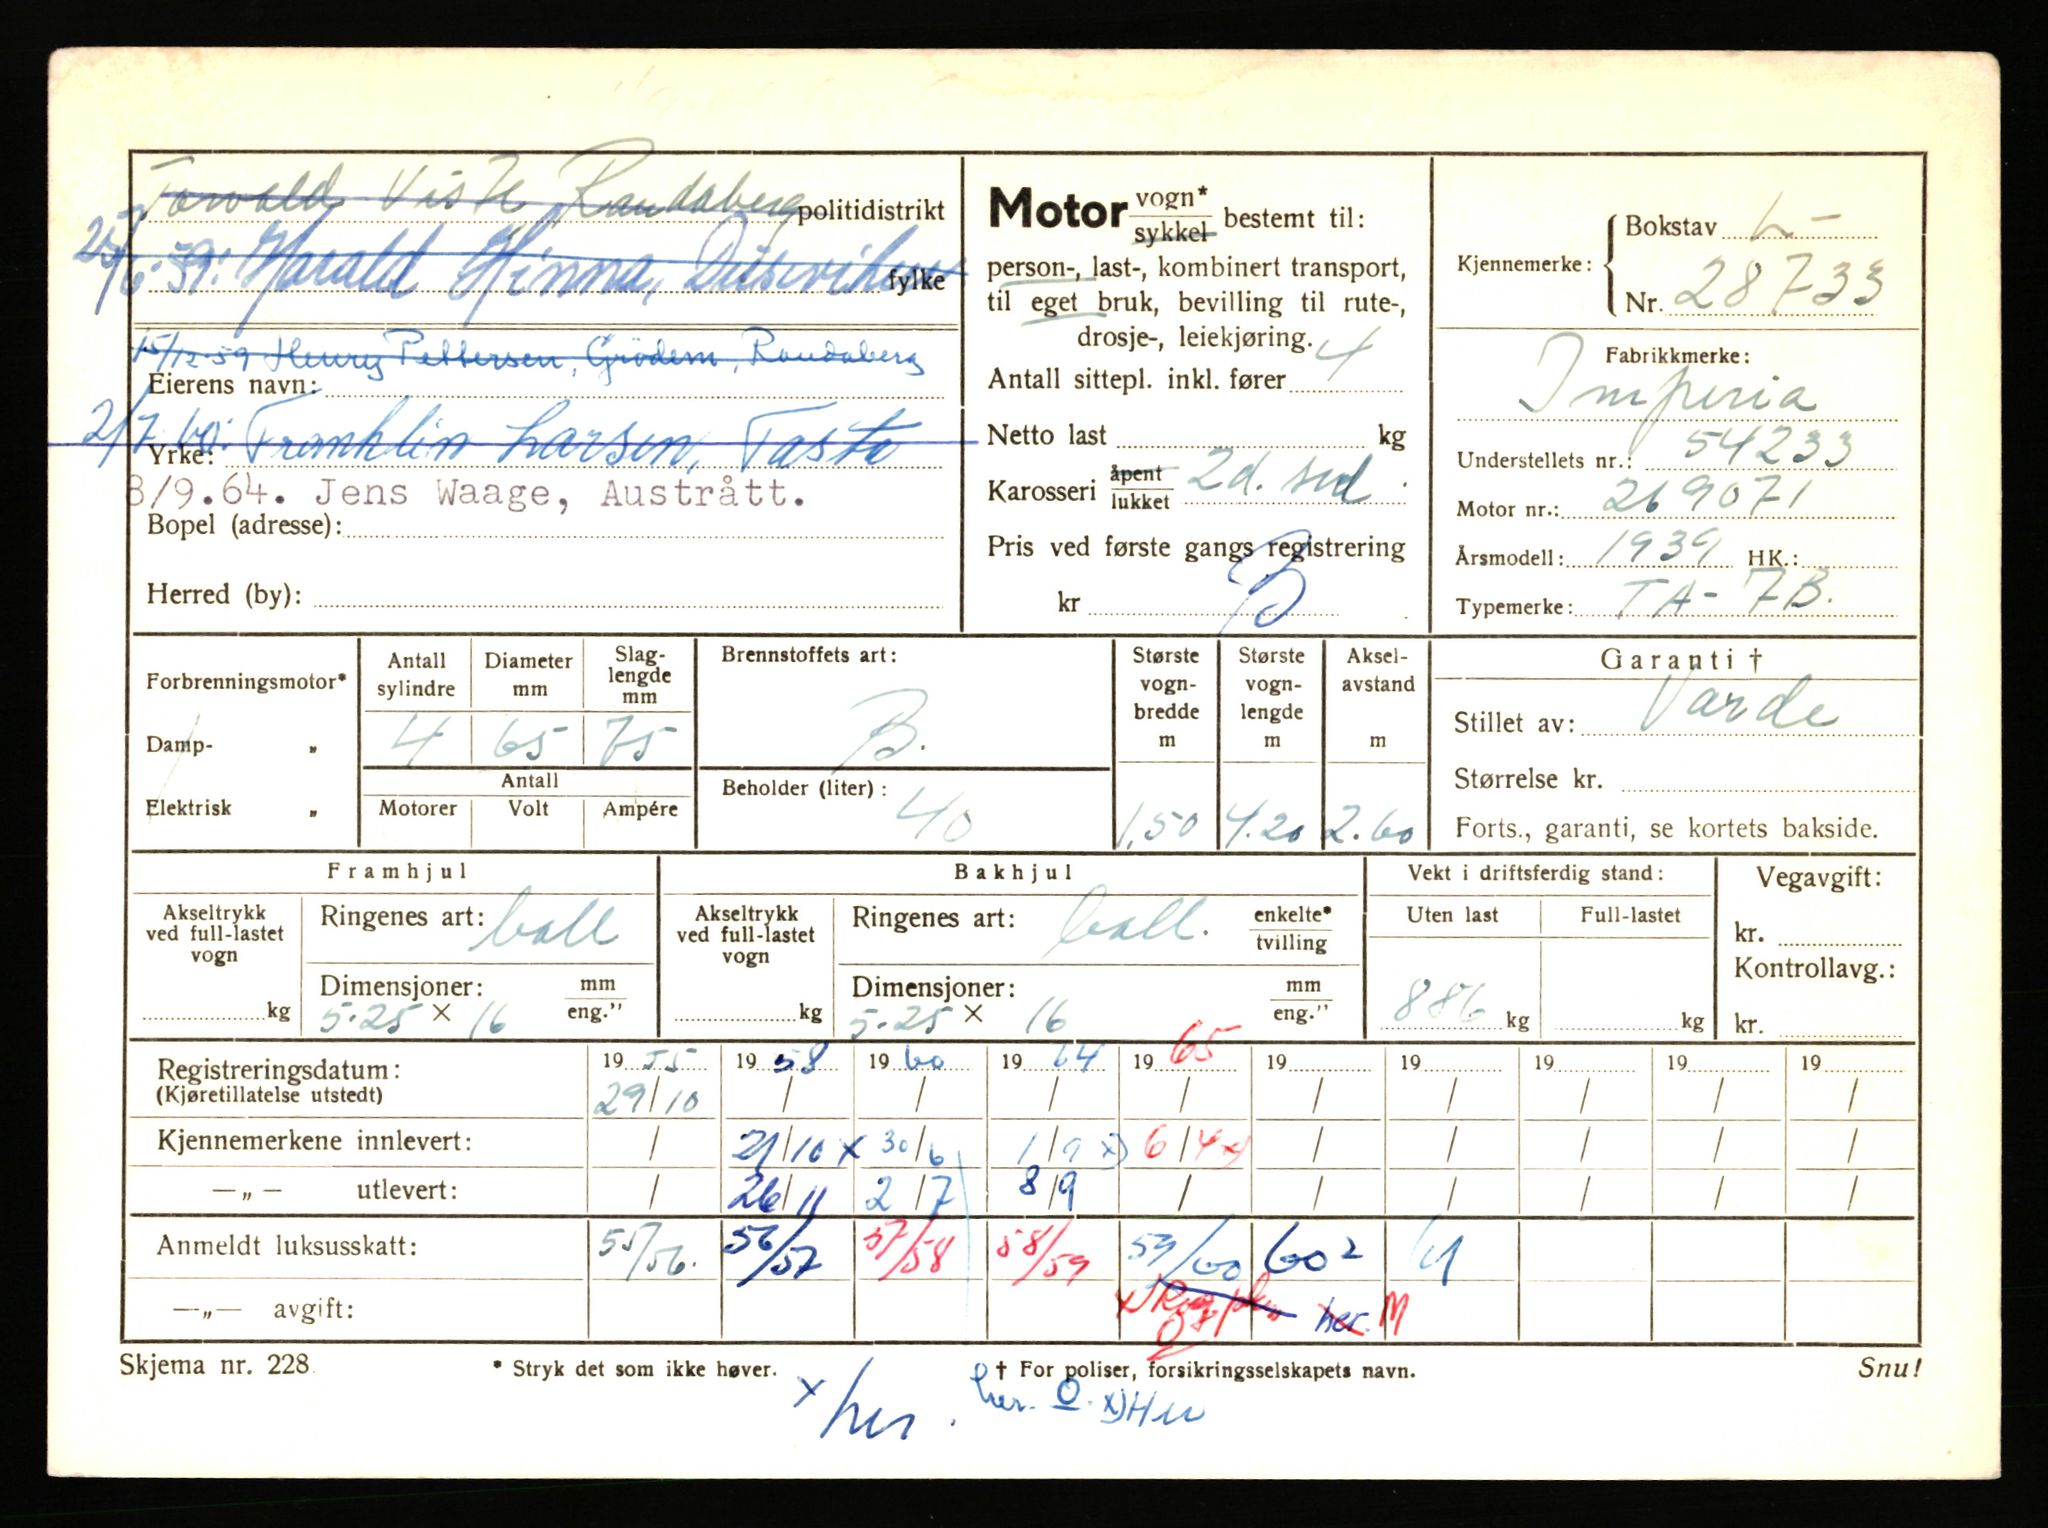 Torvald Viste Randaberg politidistrikt
25/6-59: Harald Hinna, fylke
15/12-59 Henry Pettersen, Grödem, Randaberg
Eierens navn:
2/7 60: Franklin Larsen, Tasta
Yrke:
8/9.64. Jens Waage, Austrått.
Bopel (adresse):
Herred (by):
Motor vogn* / sykkel bestemt til:
person-, last-, kombinert transport,
til eget bruk, bevilling til rute-,
drosje-, leiekjøring.
Antall sittepl. inkl. fører 4
Netto last kg
Karosseri åpent / lukket 2d. sed.
Pris ved første gangs registrering
kr B
Kjennemerke: Bokstav L-
Nr. 28733
Fabrikkmerke:
Imperia
Understellets nr.: 54233
Motor nr.: 269071
Årsmodell: 1939 HK.:
Typemerke: TA-7B.
Forbrenningsmotor*
Damp- „
Elektrisk „
Antall sylindre Diameter mm Slag-lengde mm
4 65 75
Antall
Motorer Volt Ampére
Brennstoffets art:
B.
Beholder (liter):
40
Største vogn-bredde m Største vogn-lengde m Aksel-avstand m
1,50 4.20 2.60
Garanti †
Stillet av: Varde
Størrelse kr.
Forts., garanti, se kortets bakside.
Framhjul
Akseltrykk ved full-lastet vogn
kg
Ringenes art: ball
Dimensjoner: mm / eng."
5.25 × 16
Bakhjul
Akseltrykk ved full-lastet vogn
kg
Ringenes art: ball. enkelte* / tvilling
Dimensjoner: mm / eng."
5.25 × 16
Vekt i driftsferdig stand:
Uten last Full-lastet
886 kg kg
Vegavgift:
kr.
Kontrollavg.:
kr.
Registreringsdatum: 19 55 19 58 19 60 19 64 19 65 19 19 19 19 19
(Kjøretillatelse utstedt) 29/10 / / / / / / / / /
Kjennemerkene innlevert: / 21/10 x 30/6 1/9 x) 6/4 x) / / / / /
—„— utlevert: / 26/11 2/7 8/9 / / / / / /
Anmeldt luksusskatt: 55/56. 56/57 57/58 58/59 59/60 60² 61
—„— avgift: x) her. M
Skjema nr. 228
* Stryk det som ikke høver.
† For poliser, forsikringsselskapets navn.
Snu!
x her.
her. O. x) Her